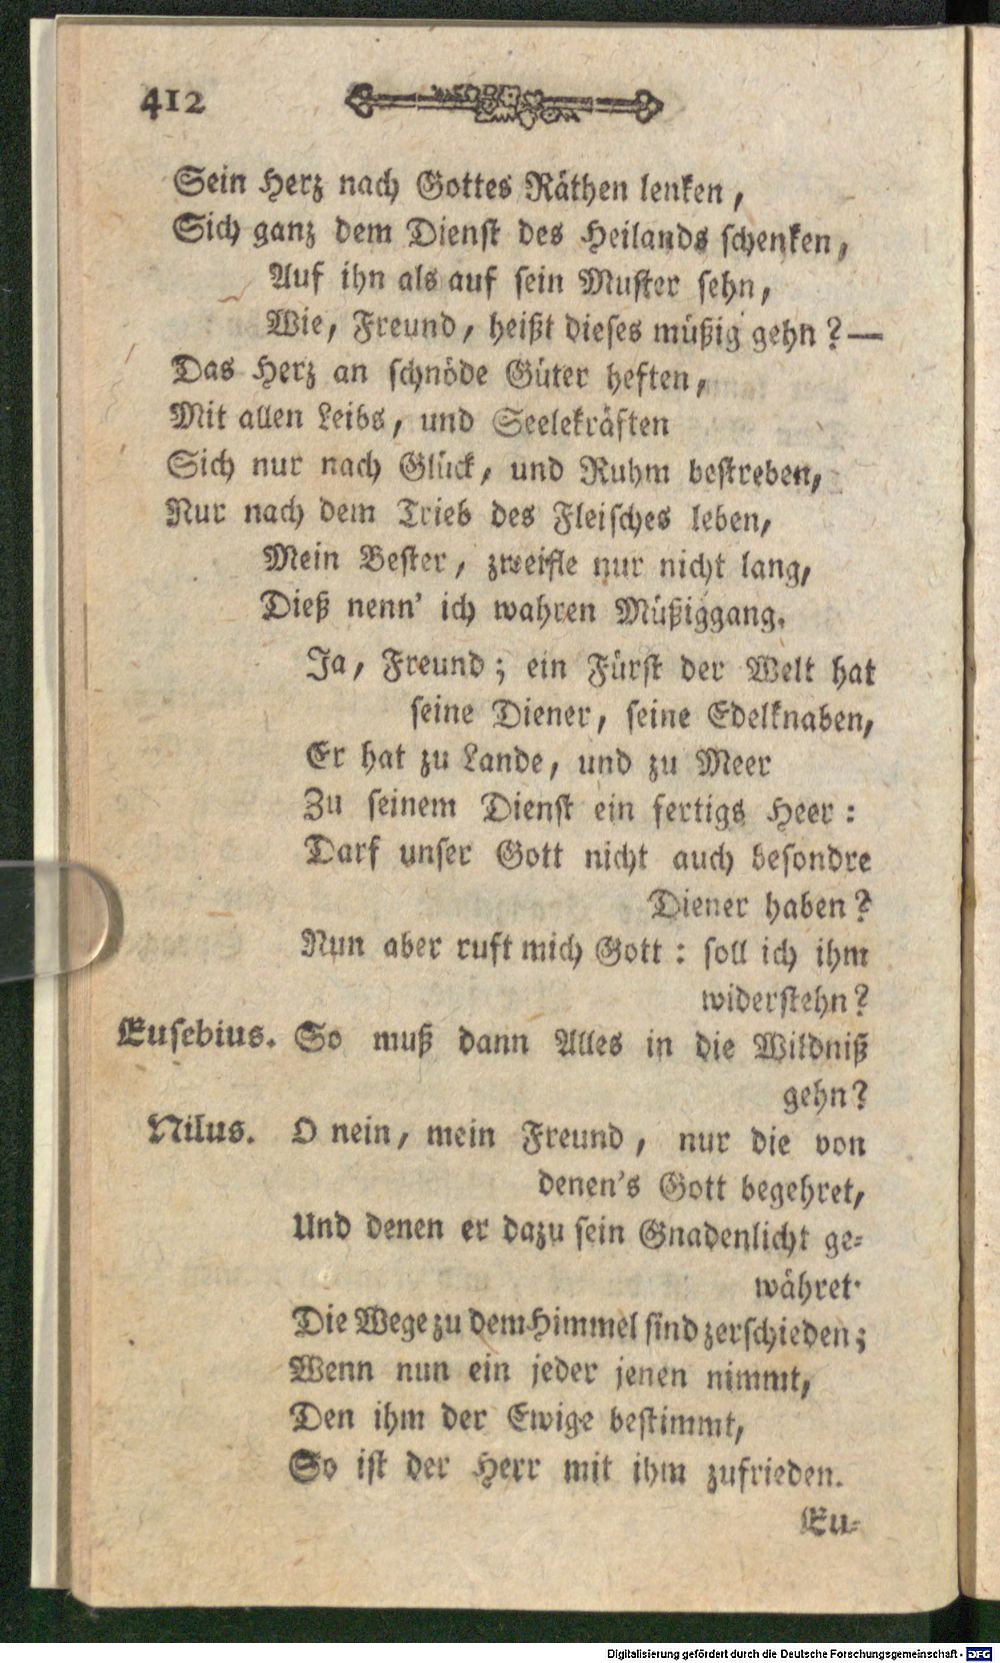 412
Sein Herz nach Gottes Räthen lenken,
Sich ganz dem Dienst des Heilands schenken,
Auf ihn als auf sein Muster sehn,
Wie, Freund, heißt dieses müßig gehn? —
Das Herz an schnöde Güter heften,
Mit allen Leibs, und Seelekräften
Sich nur nach Glück, und Ruhm bestreben,
Nur nach dem Trieb des Fleisches leben,
Mein Bester, zweifle nur nicht lang,
Dieß nenn' ich wahren Müßiggang.
Ja, Freund; ein Fürst der Welt hat
seine Diener, seine Edelknaben,
Er hat zu Lande, und zu Meer
Zu seinem Dienst ein fertigs Heer:
Darf unser Gott nicht auch besondre
Diener haben?
Nun aber ruft mich Gott: soll ich ihm
widerstehn?
Eusebius. So muß dann Alles in die Wildniß
gehn?
Nilus. O nein, mein Freund, nur die von
denen's Gott begehret,
Und denen er dazu sein Gnadenlicht ge-
währet.
Die Wege zu dem Himmel sind zerschieden;
Wenn nun ein jeder jenen nimmt,
Den ihm der Ewige bestimmt,
So ist der Herr mit ihm zufrieden.
Eu-
Digitalisierung gefördert durch die Deutsche Forschungsgemeinschaft - DFG